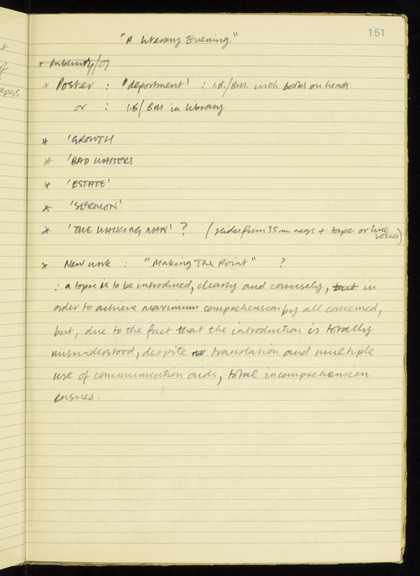 151
"A Literary Evening"
* Publicity/
* Poster : 'deportment' : IB/BM with books on heads
or : IB/BM in library
* 'GROWTH
* 'BAD WAITERS
* 'ESTATE'
* 'SERMON'
* 'THE WALKING MAN' ? (render from 35mm negs + tape or live voices)
* New work : "Making The Point" ?
: a topic is to be introduced, clearly and concisely, in
order to achieve maximum comprehension by all concerned,
but, due to the fact that the introduction is totally
misunderstood, despite translation and multiple
use of communication aids, total incomprehension
ensues.